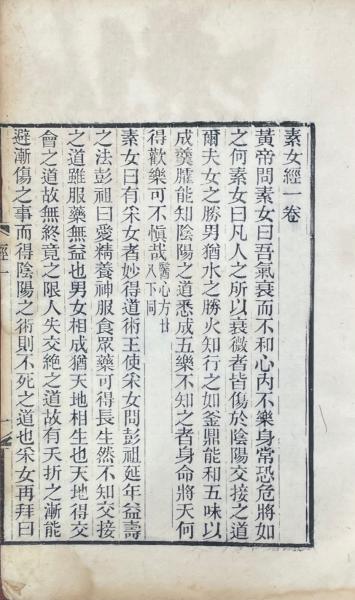 素女經一卷
黃帝問素女曰吾氣衰而不和心內不樂身常恐危將如
之何素女曰凡人之所以衰微者皆傷於陰陽交接之道
爾夫女之勝男猶水之勝火知行之如釜鼎能和五味以
成羹臛能知陰陽之道悉成五樂不知之者身命將夭何
得歡樂可不慎哉醫心方廿八下同
素女曰有采女者妙得道術王使采女問彭祖延年益壽
之法彭祖曰愛精養神服食眾藥可得長生然不知交接
之道雖服藥無益也男女相成猶天地相生也天地得交
會之道故無終竟之限人失交絕之道故有夭折之漸能
避漸傷之事而得陰陽之術則不死之道也采女再拜曰
經一
一